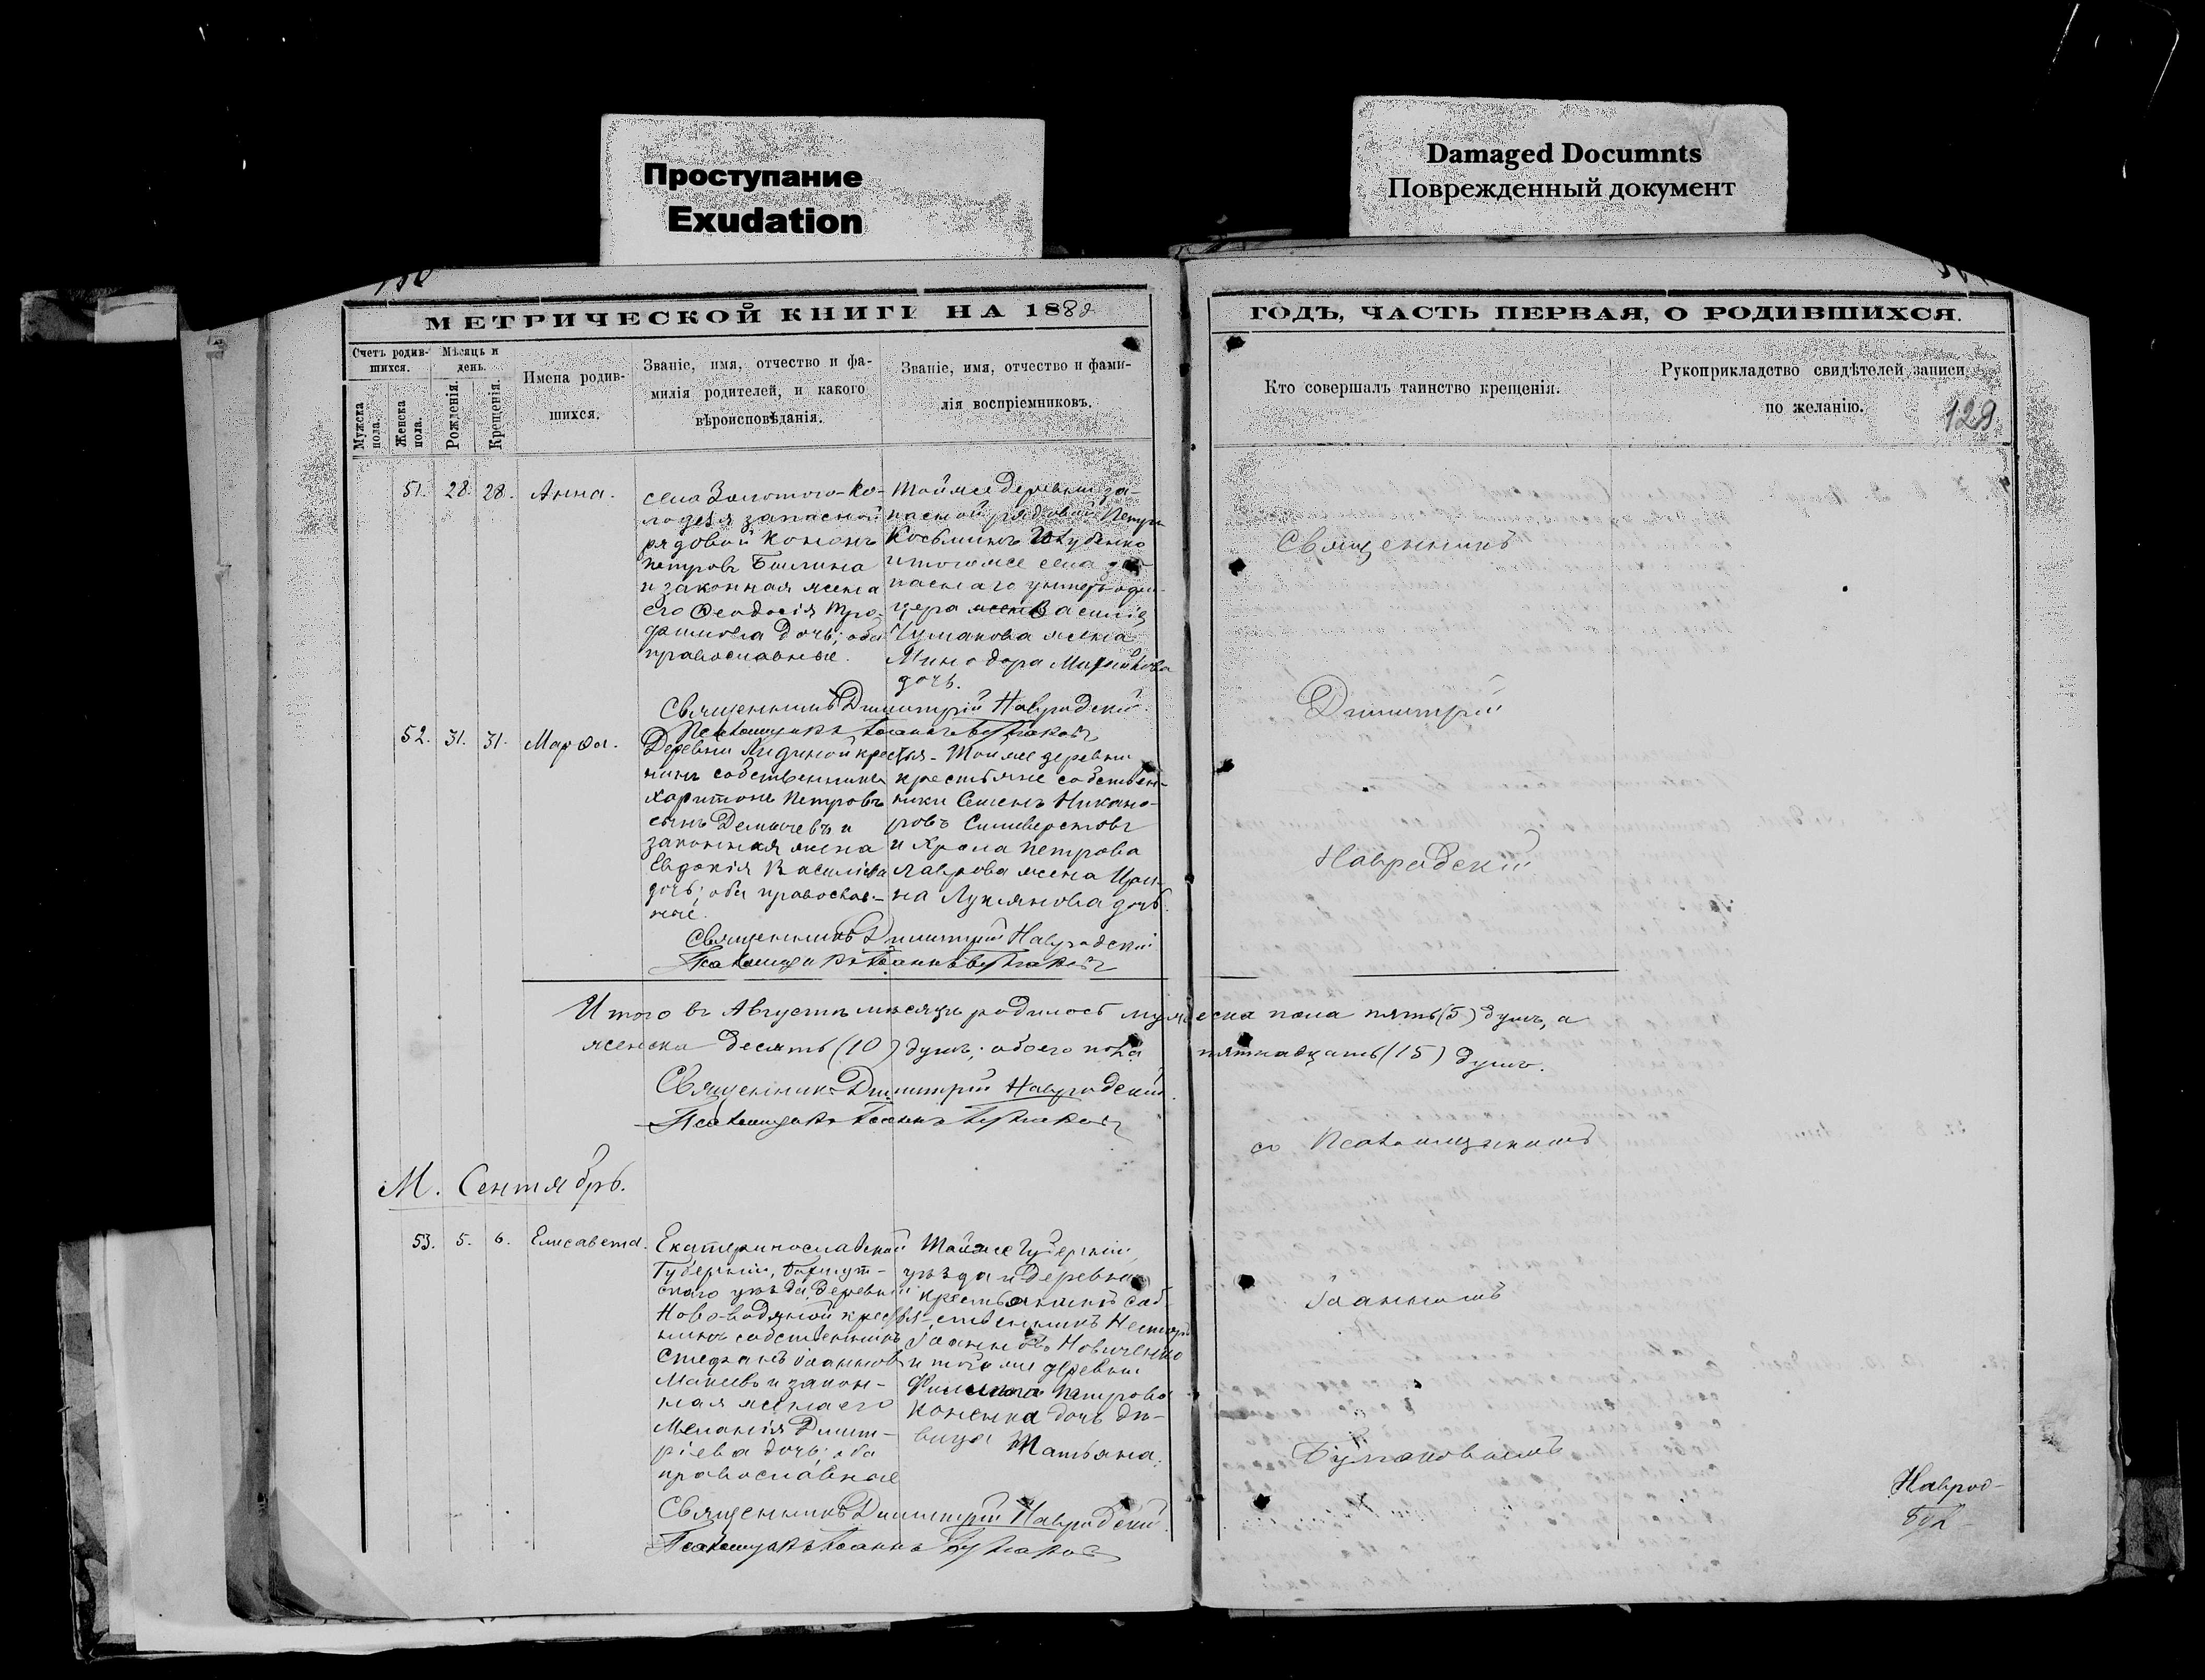 Проступание
Exudation
Damaged Documnts
Поврежденный документ
МЕТРИЧЕСКОЙ КНИГИ НА 188
ГОДЪ, ЧАСТЬ ПЕРВАЯ, О РОДИВШИХСЯ.
Счетъ родив-
шихся.
Мужска
пола.
Женска
пола.
Мѣсяцъ и
день.
Рожденія.
Крещенія.
Имена родив-
шихся.
Званіе, имя, отчество и фа-
милія родителей, и какого
вѣроисповѣданія.
Званіе, имя, отчество и фами-
лія воспріемниковъ.
Кто совершалъ таинство крещенія.
Рукоприкладство свидѣтелей записи
по желанію.
129
51. 28. 28. Анна.
села Золотого-Ко-
лодезя запасной
рядовой Кононъ
Петровъ Билина
и законная жена
его Ѳеодосія Тро-
фимова дочь; оба
православные.
Тойже деревни за-
пасной рядовой Петръ
Косьминъ
и тогоже села за-
паснаго унтеръ-офи-
цера Василія
Чумакова жена
Минодора
дочь.
Священникъ Димитрій Навродскій
Псаломщикъ Іоаннъ Бугаковъ
52. 31. 31. Марѳа.
Деревни Лидиной крестья-
нинъ собственникъ
Харитонъ Петровъ
сынъ Демичевъ и
законная жена
Евдокія Василіева
дочь; оба православ-
ные.
Тойже деревни
крестьяне собствен-
ники Семенъ Никано-
ровъ Силиверстовъ
и Фрола Петрова
Лаврова жена Ири-
на Лукянова дочь.
Священникъ Димитрій Навродскій
Псаломщикъ Іоаннъ Бугаковъ
Итого въ Августѣ мѣсяцѣ родилось мужеска пола пять (5) душъ, а
женска десять (10) душъ; обоего пола пятнадцать (15) душъ.
Священникъ Димитрій Навродскій
Псаломщикъ Іоаннъ Бугаковъ
М. Сентябрь.
53. 5. 6. Елисавета.
Екатеринославской
Губерніи, Бахмут-
скаго уѣзда, деревни
Ново-водяной крестья-
нинъ собственникъ
Стефанъ Іоанновъ
Макѣевъ и закон-
ная жена его
Меланія Димит-
ріева дочь; оба
православные
Тойже Губерніи,
уѣзда и деревни
крестьянинъ соб-
ственникъ Несторъ
Іоанновъ Новиченко
и тойже деревни
Филиппа Петрова
дочь дѣ-
вица Татьяна.
Священникъ Димитрій Навродскій.
Псаломщикъ Іоаннъ Бугаковъ
Священникъ
Димитрій
Навродскій
со Псаломщикомъ
Іоанномъ
Бугаковымъ
Наврод-